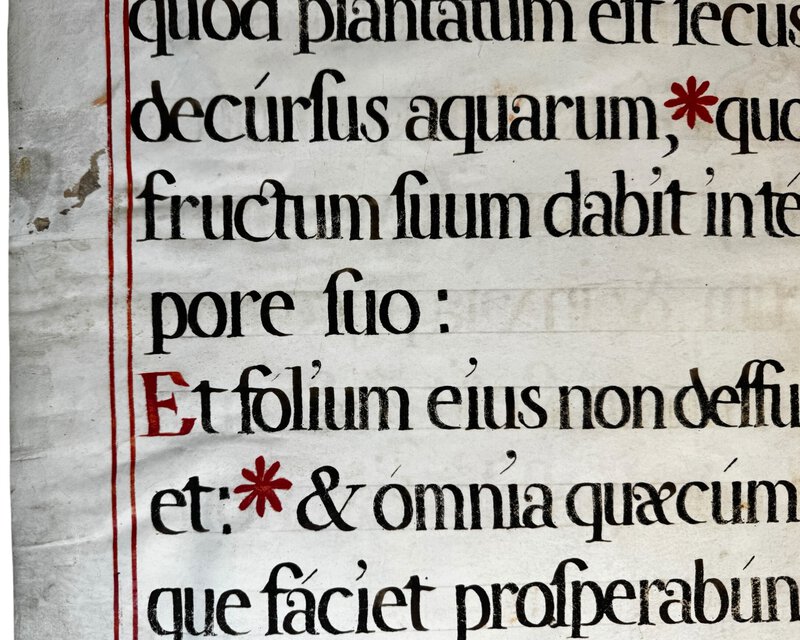 quod plantatum eſt ſecus
decúrſus aquarum,* quo
fructum ſuum dabit in té
pore ſuo :
Et fólium eius non deffu
et:* & ómnia quæcúm
que fáciet proſperabún